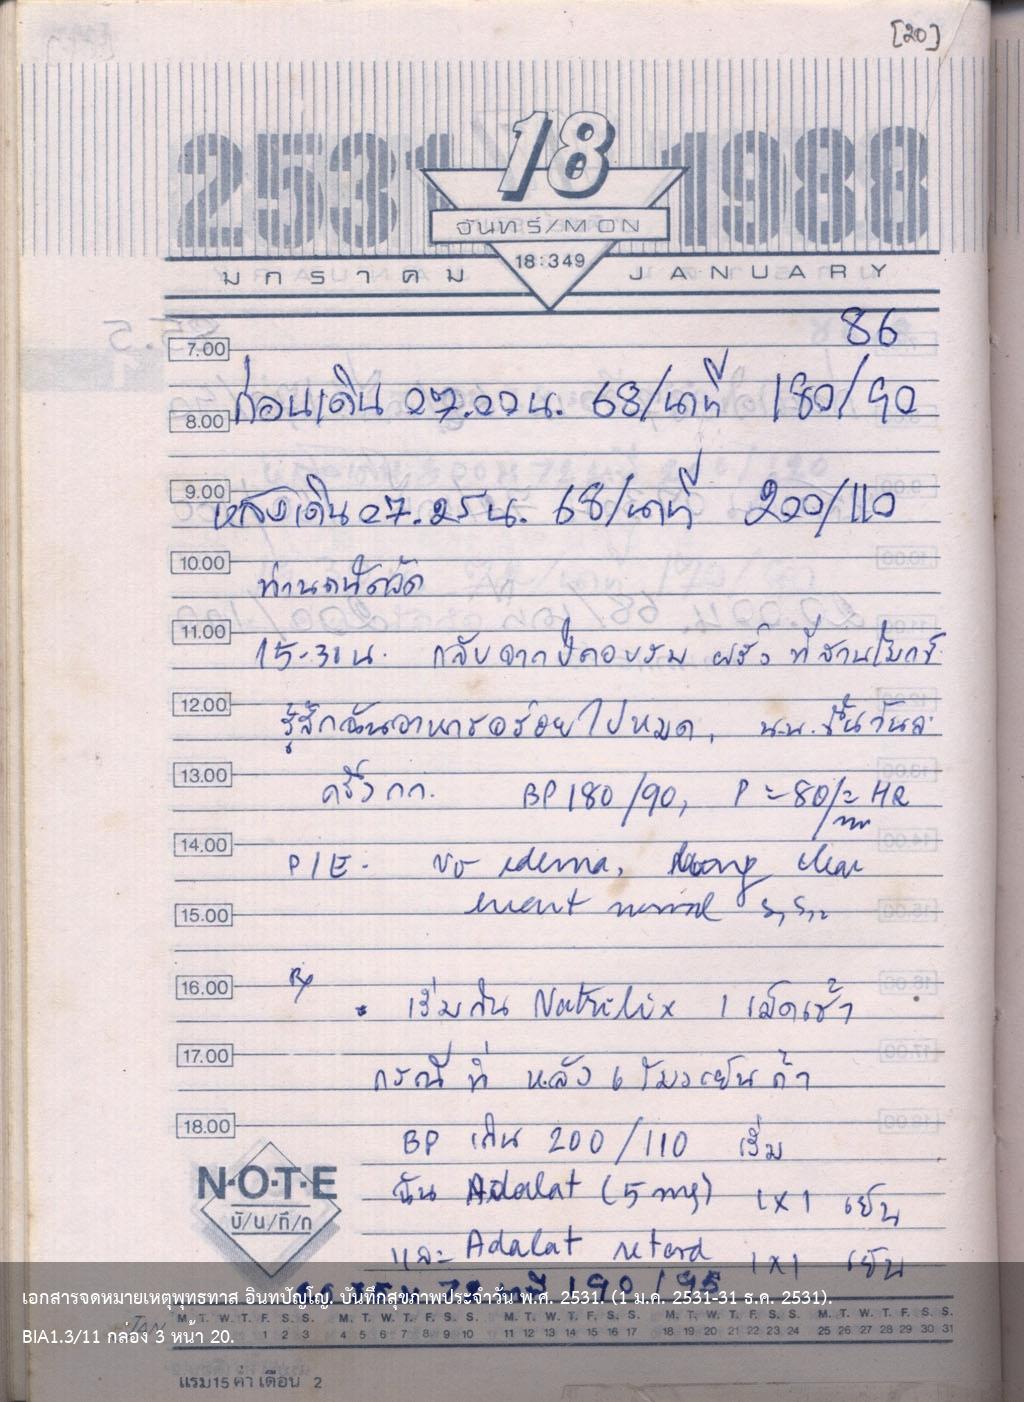 [20]
2531 18 1988
จันทร์/MON
18:349
มกราคม JANUARY
86
7.00
ก่อนเดิน 07.00 น. 68/นาที 180/90
8.00
9.00
หลังเดิน 07.25 น. 68/นาที 200/110
10.00
ท่านถนัดวัด
11.00
15.30 น. กลับจาก ฝรั่ง ที่สวนโมกข์
12.00
รู้สึกฉันอาหารอร่อยไปหมด, น.น. ขึ้นวันละ
13.00
ครึ่ง กก. BP 180/90, P = 80/ = HR
14.00
P/E. No edema, lung clear
15.00
heart normal S1 S2
16.00
Rx
เริ่มฉัน Natrilix 1 เม็ดเช้า
17.00
กรณีที่ หลัง 6 โมงเย็น ถ้า
18.00
BP เกิน 200/110 เริ่ม
N·O·T·E
บั/น/ทึ/ก
ฉัน Adalat (5 mg) 1x1 เย็น
และ Adalat retard 1x1 เย็น
190/95
เอกสารจดหมายเหตุพุทธทาส อินทปัญโญ. บันทึกสุขภาพประจำวัน พ.ศ. 2531. (1 ม.ค. 2531-31 ธ.ค. 2531).
BIA1.3/11 กล่อง 3 หน้า 20.
JAN
M. T. W. T. F. S. S. M. T. W. T. F. S. S. M. T. W. T. F. S. S. M. T. W. T. F. S. S. M. T. W. T. F. S. S.
1 2 3 4 5 6 7 8 9 10 11 12 13 14 15 16 17 18 19 20 21 22 23 24 25 26 27 28 29 30 31
แรม 15 ค่ำ เดือน 2